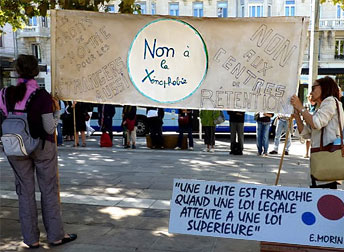 Non à
la
Xénophobie
NON
AUX
CENTRES
DE
RÉTENTION
"UNE LIMITE EST FRANCHIE
QUAND UNE LOI LEGALE
ATTENTE A UNE LOI
SUPERIEURE"
E. MORIN